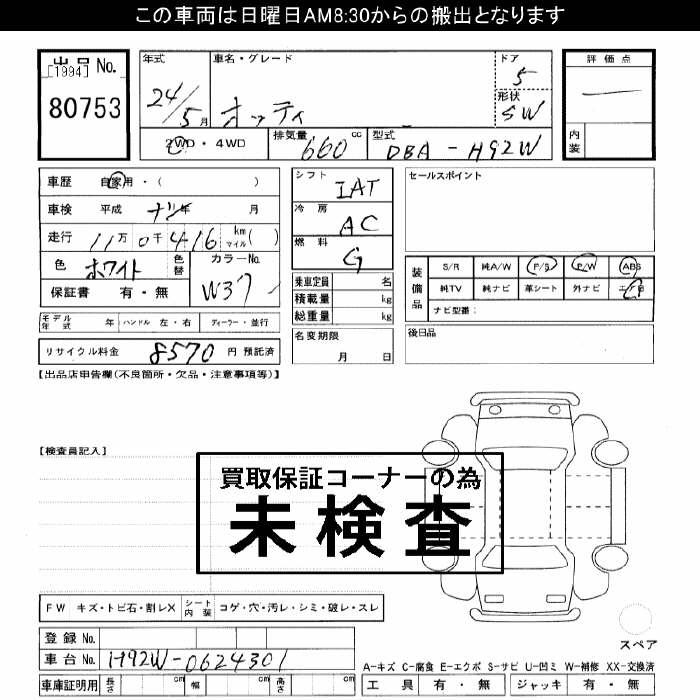 この車両は日曜日AM8:30からの搬出となります
出品 No.
[1994]
80753
年式 24/5月
車名・グレード オッティ
ドア 5
形状 SW
評価点 —
内装
2WD・4WD
排気量 660 cc
型式 DBA-H92W
車歴 自家用・( )
車検 平成 ナシ年 月
走行 11万0千416 km マイル( )
色 ホワイト 色替 カラーNo. W37
保証書 有・無
モデル年式 年 ハンドル 左・右 ディーラー・並行
リサイクル料金 8570 円 預託済
シフト IAT
冷房 AC
燃料 G
乗車定員 名
積載量 kg
総重量 kg
名変期限 月 日
セールスポイント
装備品 S/R 純A/W P/S P/W ABS
純TV 純ナビ 革シート 外ナビ エアB
ナビ型番:
後日品
【出品店申告欄(不良箇所・欠品・注意事項等)】
【検査員記入】
買取保証コーナーの為
未検査
FW キズ・トビ石・割レX シート内装 コゲ・穴・汚レ・シミ・破レ・スレ
スペア
登録 No.
車台 No. H92W-0624301
車庫証明用 長さ cm 幅 cm 高さ cm
A-キズ C-腐食 E-エクボ S-サビ U-凹ミ W-補修 XX-交換済
工具 有・無 ジャッキ 有・無